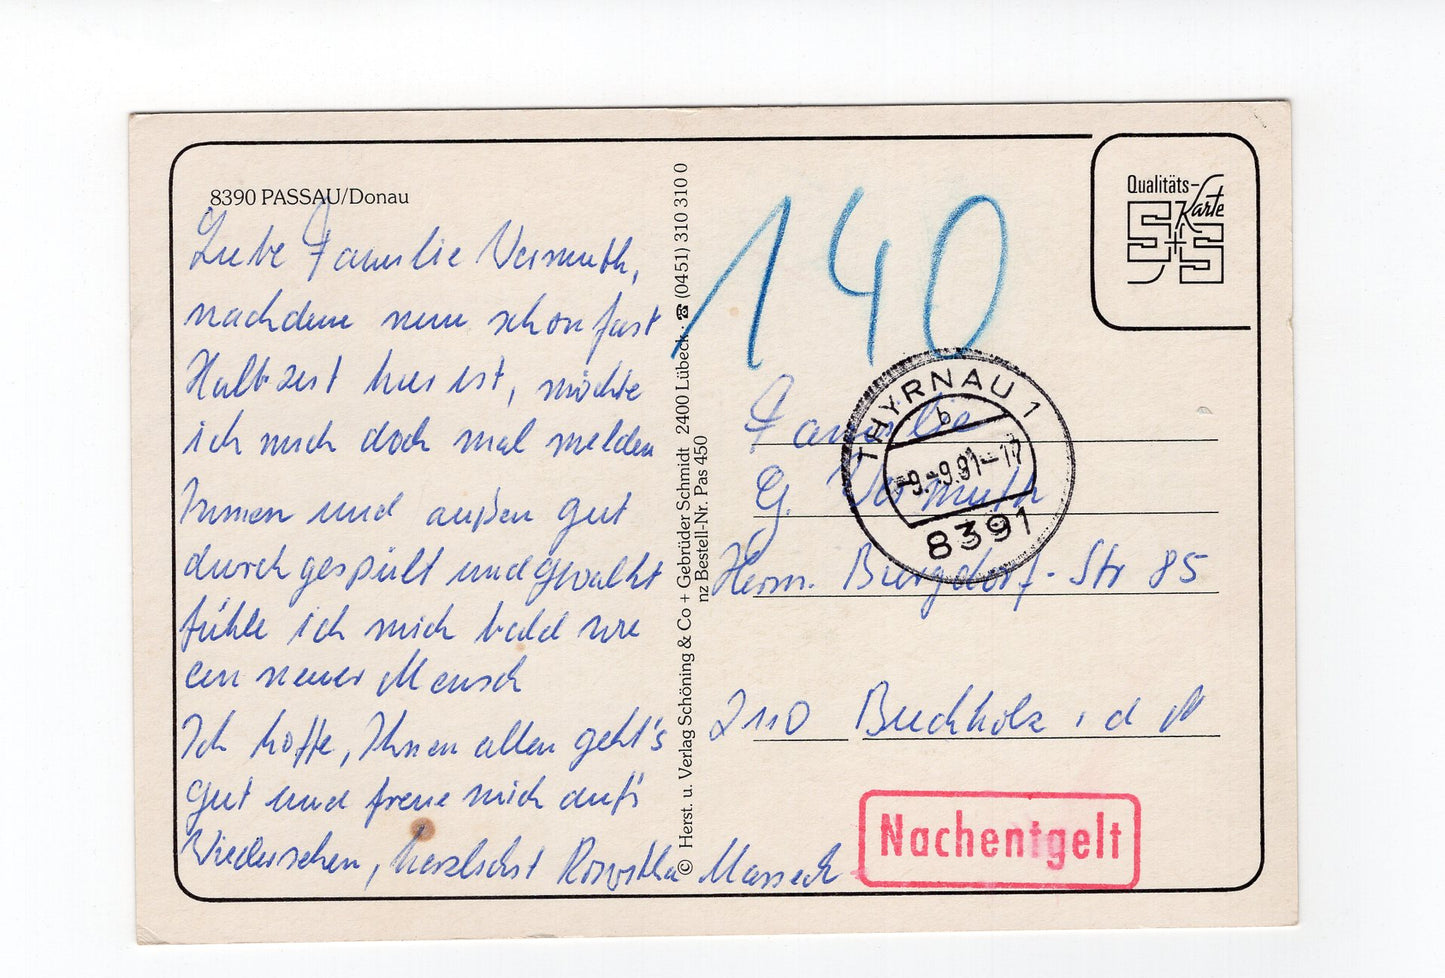 8390 PASSAU/Donau
Liebe Familie Vermuth,
nachdem nun schon fast
Halbzeit hier ist, möchte
ich mich doch mal melden
Innen und außen gut
durchgespült und gewalkt
fühle ich mich bald wie
ein neuer Mensch
Ich hoffe, Ihnen allen geht's
gut und freue mich auf's
Wiedersehen, herzlichst Roswitha
© Herst. u. Verlag Schöning & Co + Gebrüder Schmidt 2400 Lübeck · ☎ (0451) 310 310 0
nz Bestell-Nr. Pas 450
140
Qualitäts-
Karte
S+S
THYRNAU 1
b
-9.-9.91-17
8391
Familie
G. Vermuth
Herm. Burgdorf-Str 85
2110 Buchholz i d N
Nachentgelt